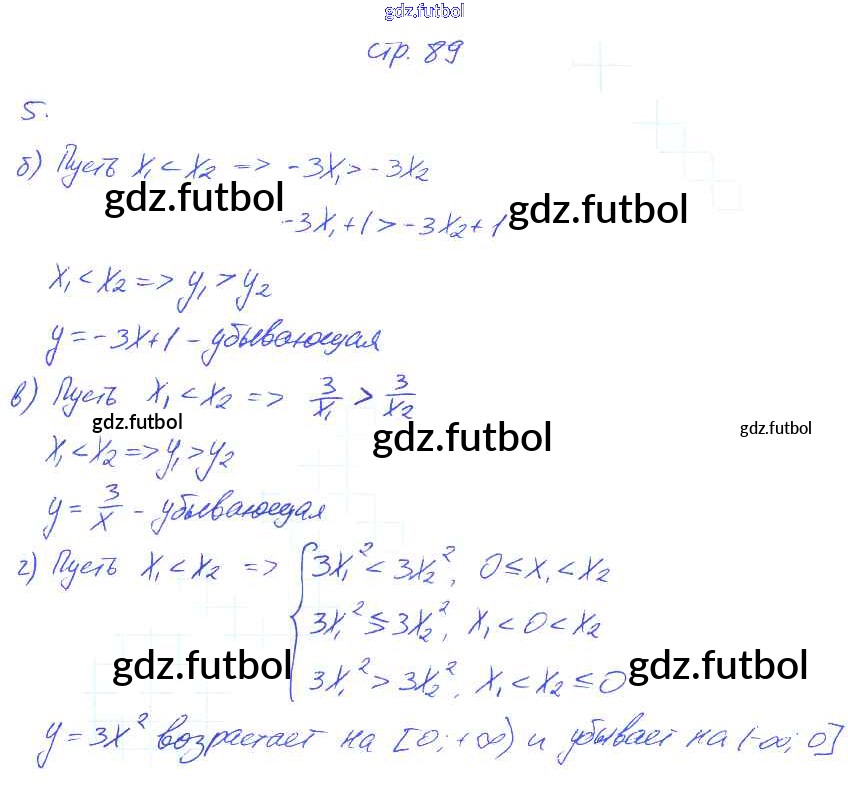 gdz.futbol
стр. 89
5.
б) Пусть x₁ < x₂ => -3x₁ > -3x₂
gdz.futbol
-3x₁+1 > -3x₂+1
gdz.futbol
x₁ < x₂ => y₁ > y₂
y = -3x+1 - убывающая
в) Пусть x₁ < x₂ => 3/x₁ > 3/x₂
gdz.futbol
gdz.futbol
gdz.futbol
x₁ < x₂ => y₁ > y₂
y = 3/x - убывающая
г) Пусть x₁ < x₂ => { 3x₁² < 3x₂², 0 ≤ x₁ < x₂
3x₁² ≶ 3x₂², x₁ < 0 < x₂
gdz.futbol
3x₁² > 3x₂², x₁ < x₂ ≤ 0
gdz.futbol
y = 3x² возрастает на [0; +∞) и убывает на (-∞; 0]